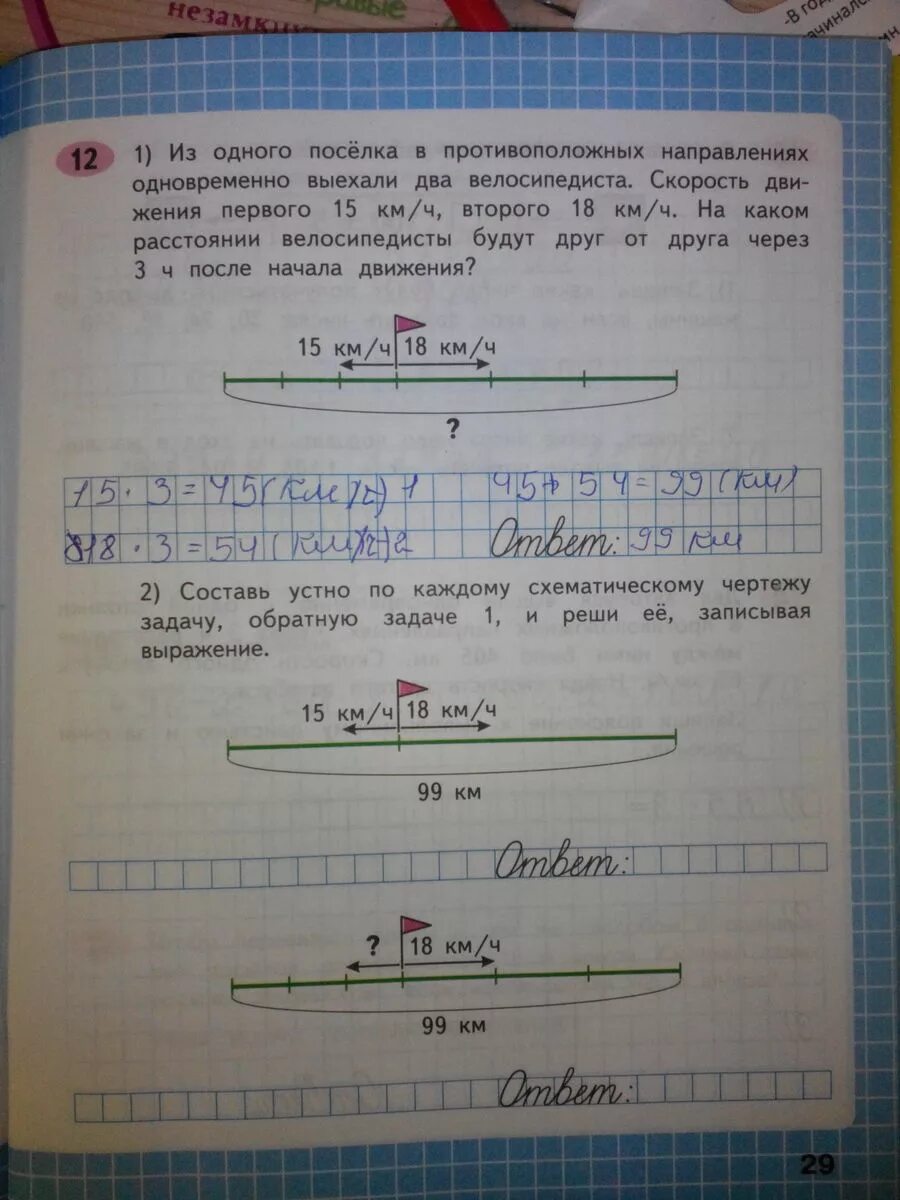 незамкну
-В год
ачинался
12
1) Из одного посёлка в противоположных направлениях
одновременно выехали два велосипедиста. Скорость дви-
жения первого 15 км/ч, второго 18 км/ч. На каком
расстоянии велосипедисты будут друг от друга через
3 ч после начала движения?
15 км/ч 18 км/ч
?
15 · 3 = 45 (км) 1 45 + 54 = 99 (км)
18 · 3 = 54 (км) 2 Ответ: 99 км
2) Составь устно по каждому схематическому чертежу
задачу, обратную задаче 1, и реши её, записывая
выражение.
15 км/ч 18 км/ч
99 км
Ответ:
? 18 км/ч
99 км
Ответ:
29